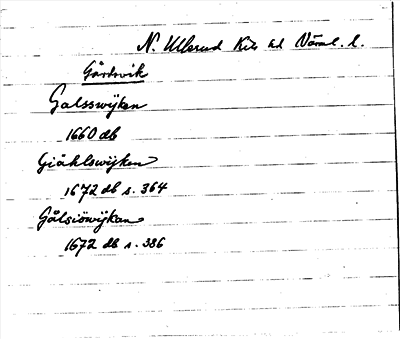 N. Ullerud Kils hd Värml. l.
Gårdsvik
Galsswijken
1660 db
Giählswijken
1672 db s. 364
Gålsiöwijkan
1672 db s. 386